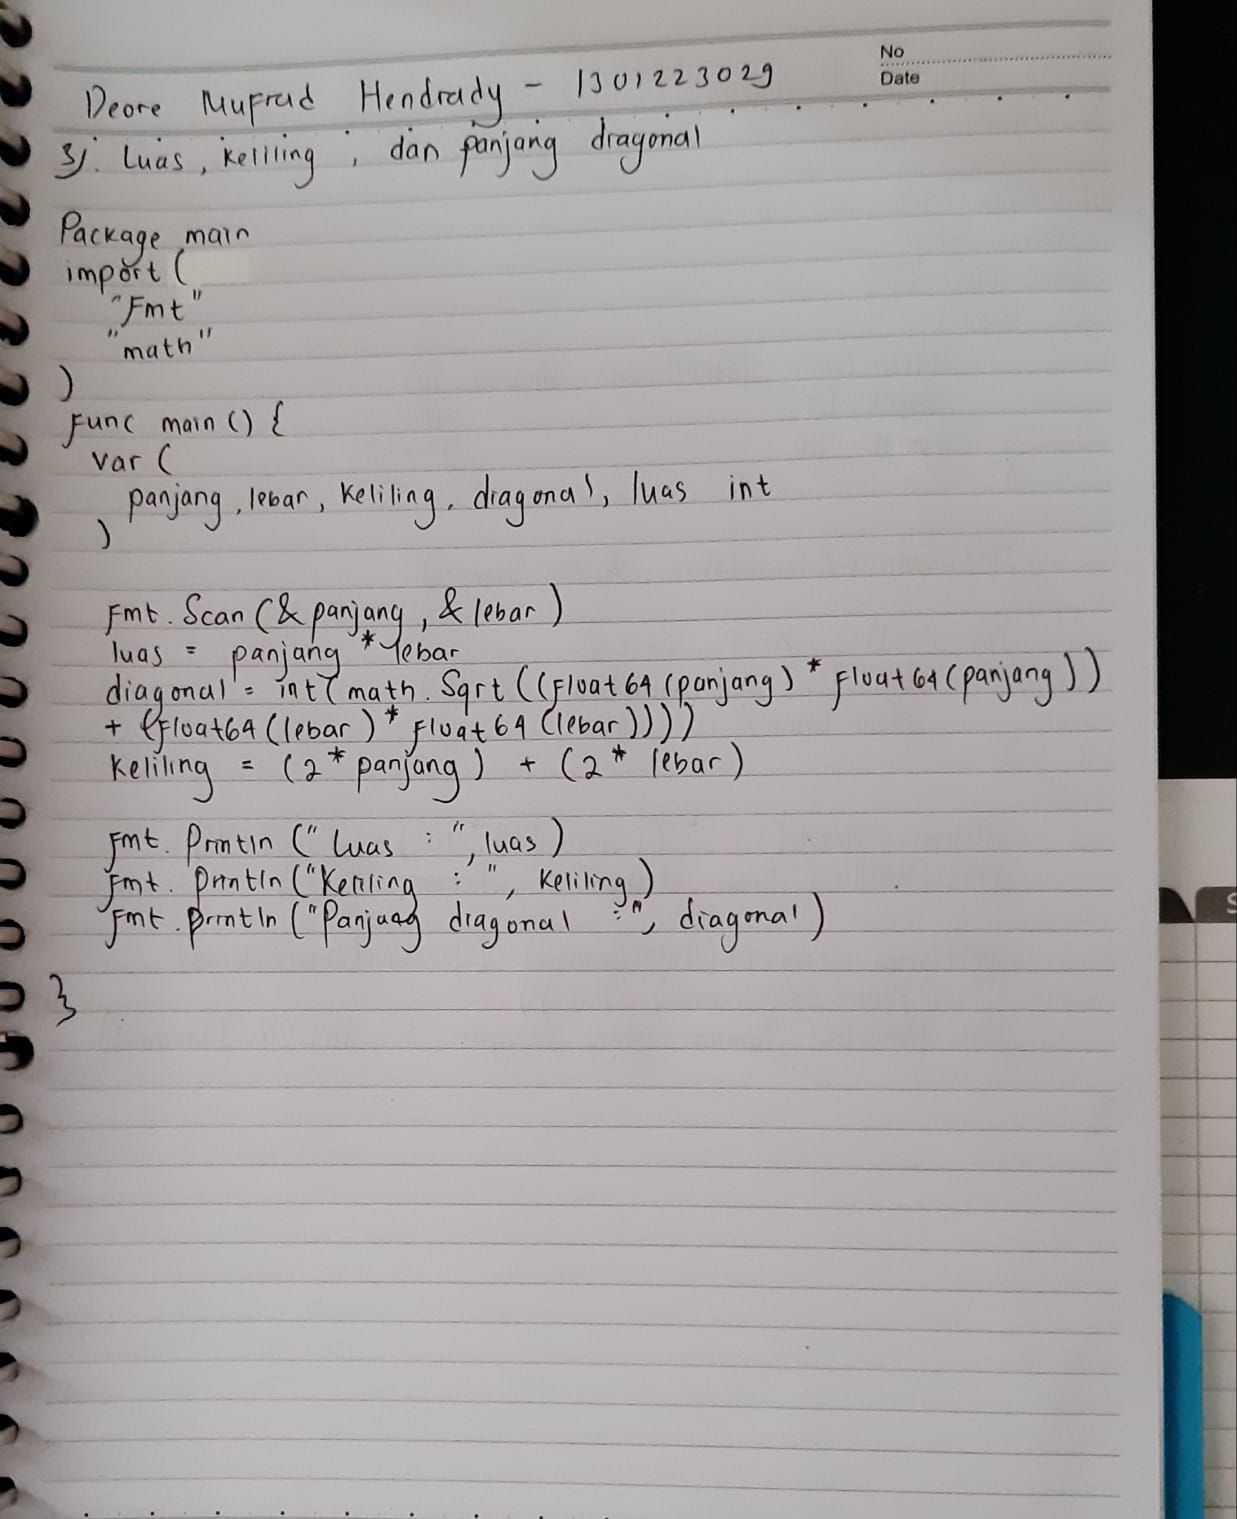 No
Date
Deore Mufrad Hendrady - 1301223029
3). Luas, keliling, dan panjang diagonal
Package main
import (
"Fmt"
"math"
)
Func main () {
var (
panjang, lebar, keliling, diagonal, luas int
)
Fmt. Scan (& panjang, & lebar)
luas = panjang * lebar
diagonal = int (math. Sqrt ((Float64 (panjang) * Float64 (panjang))
+ (Float64 (lebar) * Float64 (lebar))))
Keliling = (2 * panjang) + (2 * lebar)
Fmt. Println (" Luas : ", luas)
Fmt. Println ("Keliling : ", Keliling)
Fmt. Println ("Panjang diagonal : ", diagonal)
}
S